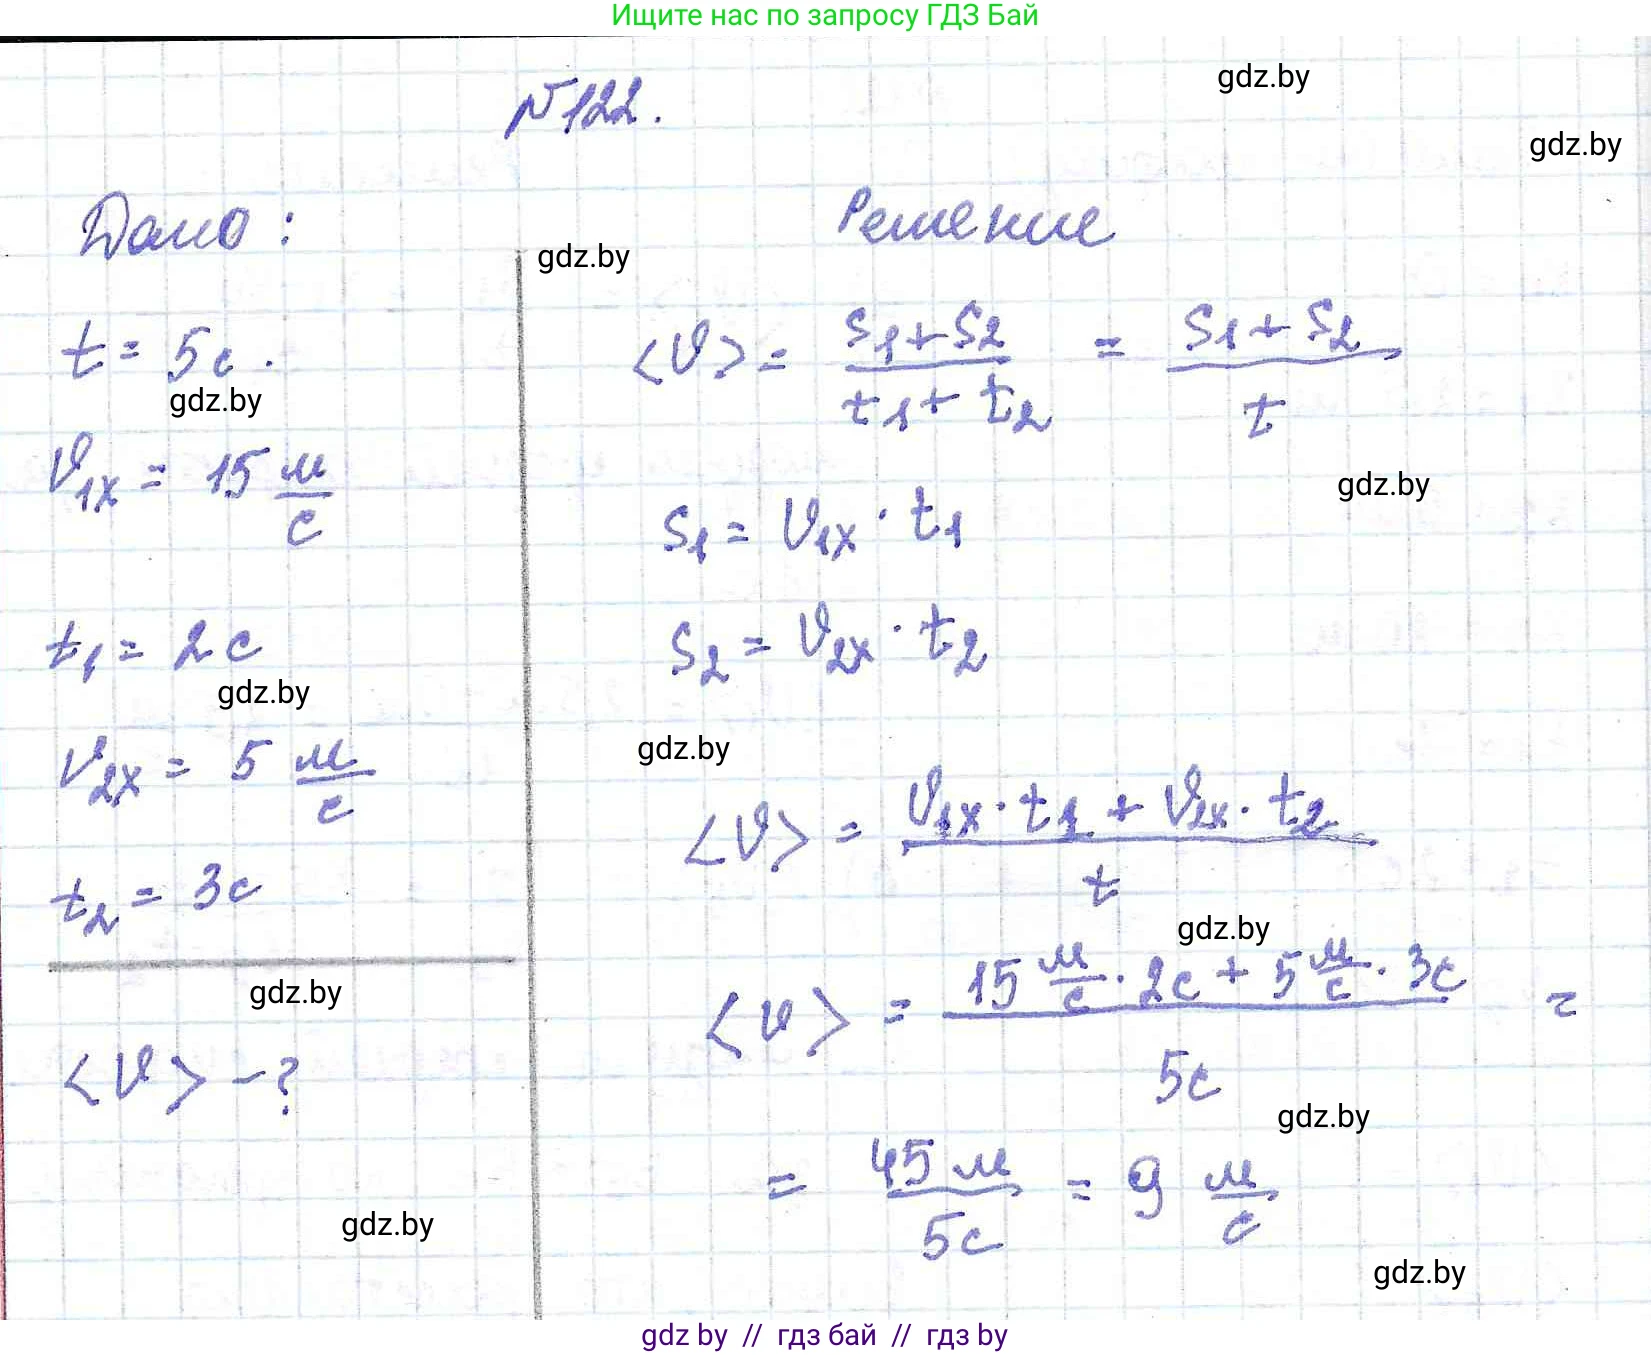 Ищите нас по запросу ГДЗ Бай
gdz.by
№122.
gdz.by
Дано:
Решение
gdz.by
t = 5с.
<υ> = (s₁+s₂)/(t₁+t₂) = (s₁+s₂)/t
gdz.by
υ₁ₓ = 15 м/с
gdz.by
s₁ = υ₁ₓ · t₁
t₁ = 2с
s₂ = υ₂ₓ · t₂
gdz.by
gdz.by
υ₂ₓ = 5 м/с
<υ> = (υ₁ₓ · t₁ + υ₂ₓ · t₂)/t
t₂ = 3с
gdz.by
gdz.by
<υ> = (15 м/с · 2с + 5 м/с · 3с)/5с =
<υ> - ?
gdz.by
= 45м/5с = 9 м/с
gdz.by
gdz.by
gdz by // гдз бай // гдз by